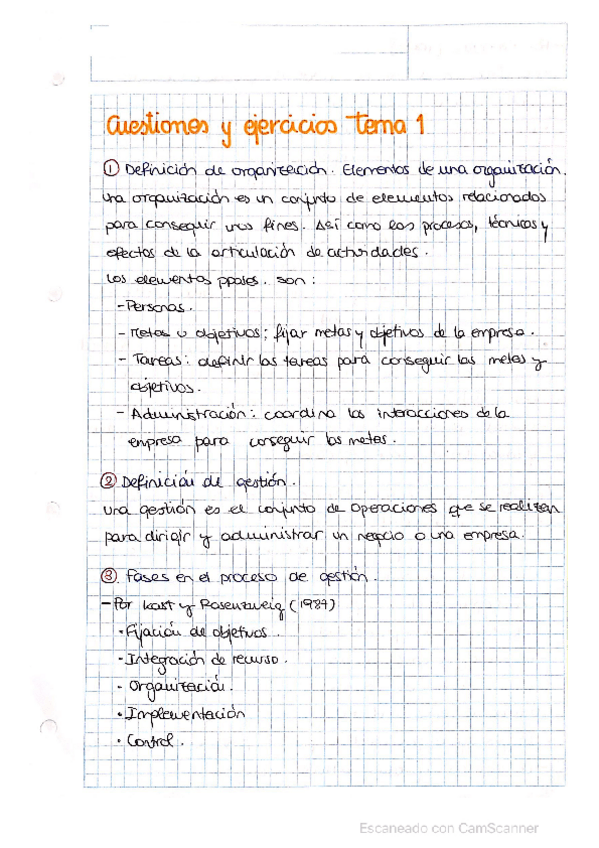 Cuestiones y ejercicios tema 1
① Definición de organización. Elementos de una organización.
Una organización es un conjunto de elementos relacionados
para conseguir unos fines. Así como los procesos, técnicas y
efectos de la articulación de actividades.
Los elementos ppales. son:
- Personas.
- Metas u objetivos: fijar metas y objetivos de la empresa.
- Tareas: definir las tareas para conseguir las metas y
objetivos.
- Administración: coordina las interacciones de la
empresa para conseguir las metas.
② Definición de gestión.
Una gestión es el conjunto de operaciones que se realizan
para dirigir y administrar un negocio o una empresa.
③ Fases en el proceso de gestión.
- Por Kast y Rosenzweig (1987)
· Fijación de objetivos.
· Integración de recurso.
· Organización.
· Implementación
· Control.
Escaneado con CamScanner